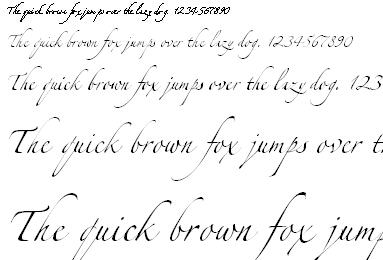 The quick brown fox jumps over the lazy dog. 1234567890
The quick brown fox jumps over the lazy dog. 1234567890
The quick brown fox jumps over the lazy dog. 123
The quick brown fox jumps over
The quick brown fox jump